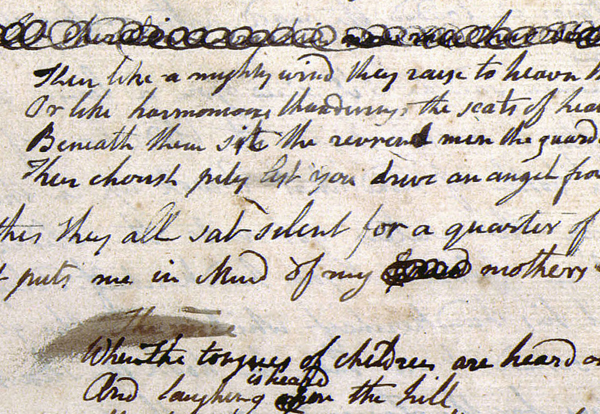 Then like a mighty wind they raise to heaven
Or like harmonious thunderings the seats of hea
Beneath them sit the revrend men the guard
Then cherish pity lest you drive an angel fro
this they all sat silent for a quarter of
t puts me in Mind of my mothers
The
When the tongues of children are heard o
is heard
And laughing on the hill